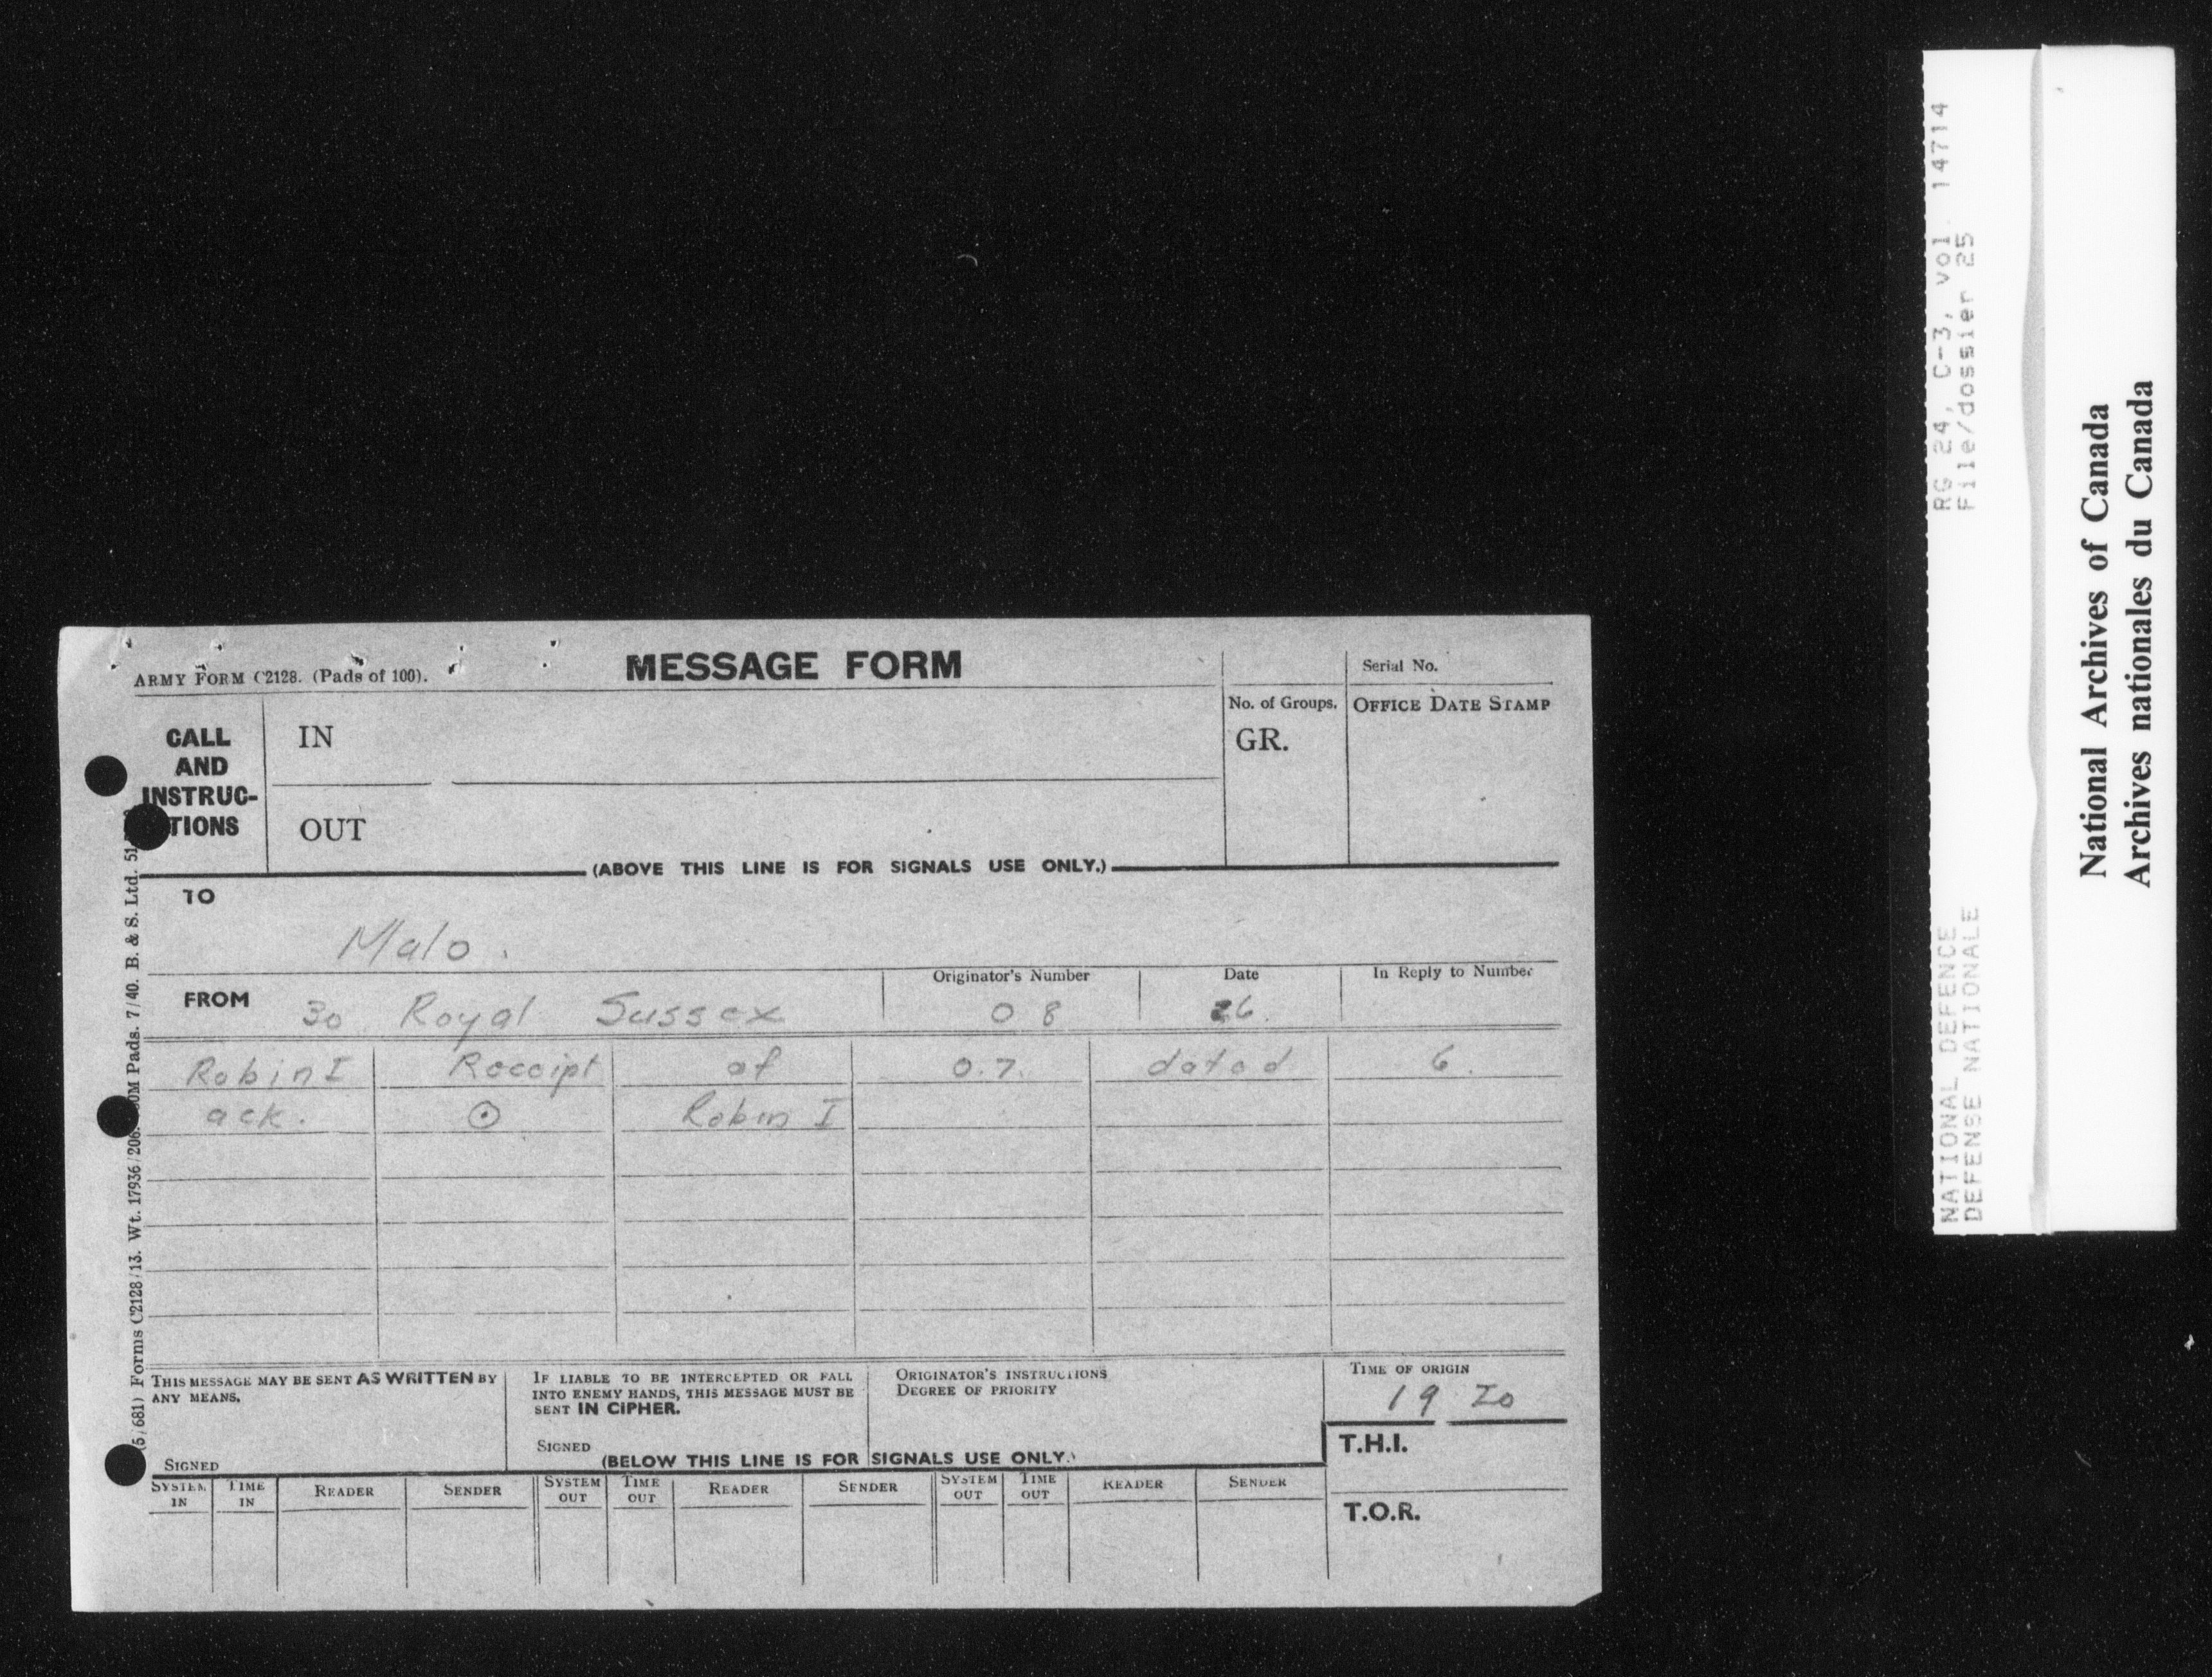 ARMY FORM C2128. (Pads of 100).
MESSAGE FORM
Serial No.
CALL AND INSTRUC-TIONS
IN
OUT
No. of Groups.
GR.
OFFICE DATE STAMP
(ABOVE THIS LINE IS FOR SIGNALS USE ONLY.)
TO
Malo.
FROM 30 Royal Sussex
Originator's Number
08
Date
26.
In Reply to Number
Robin I Receipt of 0.7. dated 6.
ack. ⊙ Robin I
THIS MESSAGE MAY BE SENT AS WRITTEN BY
ANY MEANS.
SIGNED
IF LIABLE TO BE INTERCEPTED OR FALL
INTO ENEMY HANDS, THIS MESSAGE MUST BE
SENT IN CIPHER.
SIGNED
ORIGINATOR'S INSTRUCTIONS
DEGREE OF PRIORITY
TIME OF ORIGIN
19 20
T.H.I.
T.O.R.
(BELOW THIS LINE IS FOR SIGNALS USE ONLY.)
SYSTEM IN TIME IN READER SENDER SYSTEM OUT TIME OUT READER SENDER SYSTEM OUT TIME OUT READER SENDER
5/681) Forms C2128/13. Wt. 17936/206. Pads. 7/40. B. & S. Ltd. 51
RG 24, C-3, vol 14714
File/dossier 25
NATIONAL DEFENCE
DEFENSE NATIONALE
National Archives of Canada
Archives nationales du Canada